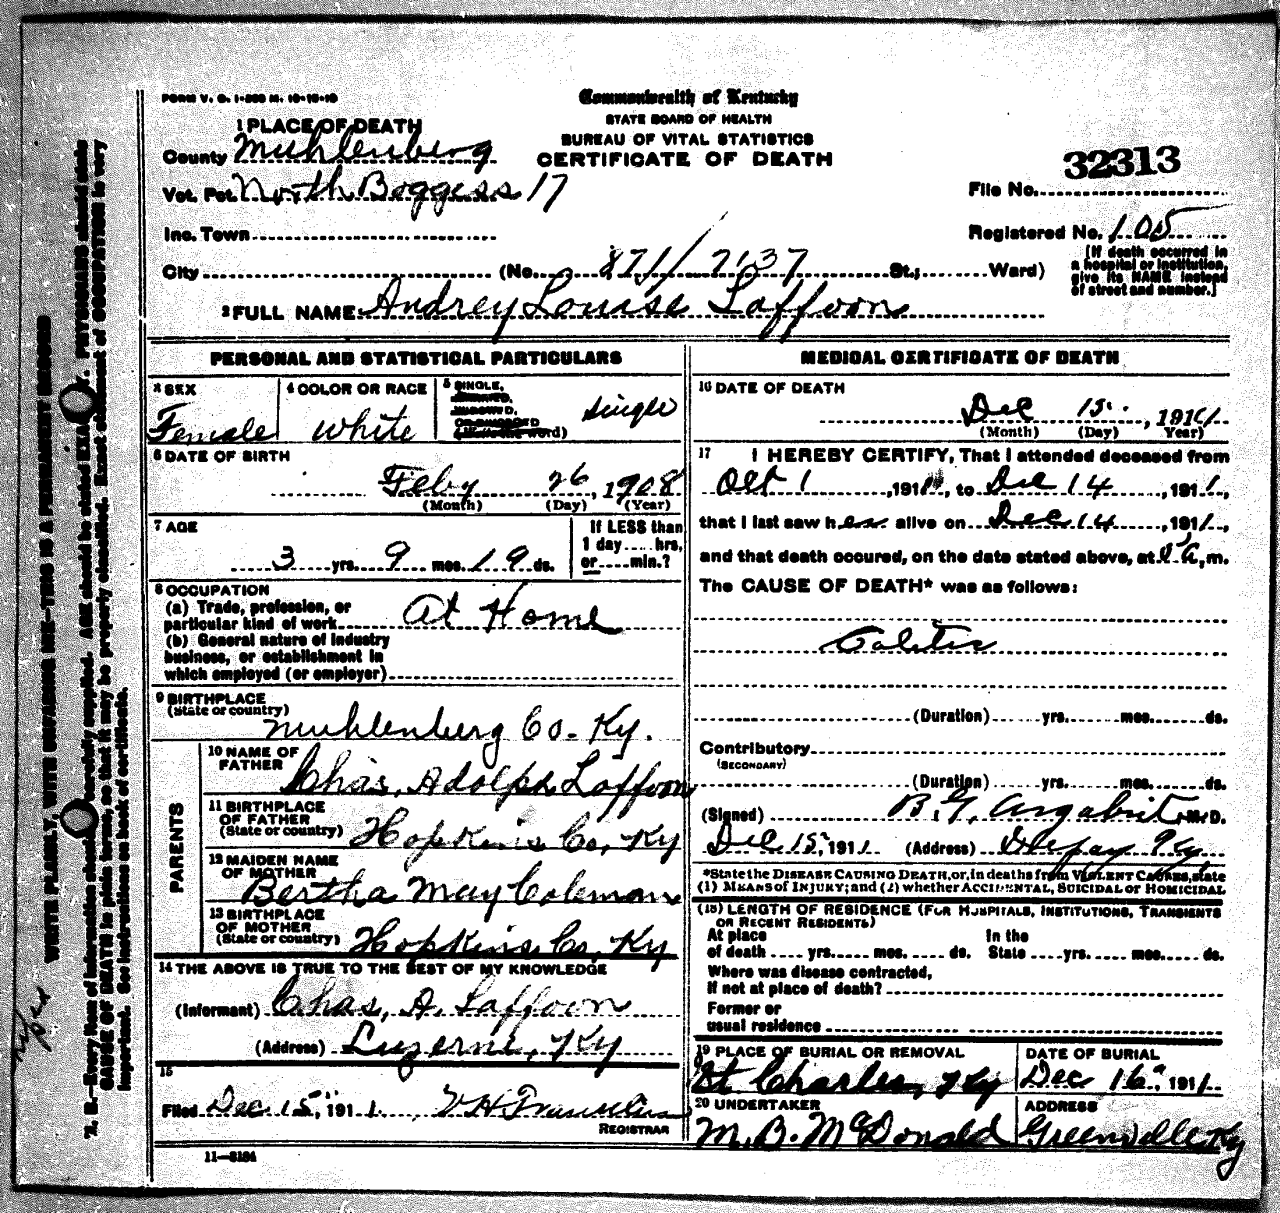 FORM V. S. 1-250 M. 10-10-10
Commonwealth of Kentucky
STATE BOARD OF HEALTH
BUREAU OF VITAL STATISTICS
CERTIFICATE OF DEATH
1 PLACE OF DEATH
County Muhlenberg
Vot. Pct. North Boggess 17
Inc. Town
City (No. 871/7137 St.; Ward)
32313
File No.
Registered No. 105
[If death occurred in
a hospital or institution,
give its NAME instead
of street and number.]
2 FULL NAME Audrey Louise Laffoon
PERSONAL AND STATISTICAL PARTICULARS
3 SEX Female
4 COLOR OR RACE White
5 SINGLE, Single
6 DATE OF BIRTH
Feby 26, 1908
(Month) (Day) (Year)
7 AGE
3 yrs. 9 mos. 19 ds.
If LESS than
1 day .... hrs,
or .... min.?
8 OCCUPATION
(a) Trade, profession, or
particular kind of work At Home
(b) General nature of industry
business, or establishment in
which employed (or employer)
9 BIRTHPLACE
(State or country)
Muhlenberg Co. Ky.
PARENTS
10 NAME OF
FATHER Chas. Adolph Laffoon
11 BIRTHPLACE
OF FATHER
(State or country) Hopkins Co, Ky
12 MAIDEN NAME
OF MOTHER
Bertha May Coleman
13 BIRTHPLACE
OF MOTHER
(State or country) Hopkins Co, Ky
14 THE ABOVE IS TRUE TO THE BEST OF MY KNOWLEDGE
(Informant) Chas, A. Laffoon
(Address) Luzerne, Ky
15
Filed Dec. 15, 1911.
REGISTRAR
11—3184
MEDICAL CERTIFICATE OF DEATH
16 DATE OF DEATH
Dec 15, 1911
(Month) (Day) (Year)
17 I HEREBY CERTIFY, That I attended deceased from
Oct 1, 1911, to Dec 14, 1911,
that I last saw her alive on Dec 14, 1911,
and that death occured, on the date stated above, at A, m.
The CAUSE OF DEATH* was as follows:
Colitis
(Duration) yrs. mos. ds.
Contributory
(SECONDARY)
(Duration) yrs. mos. ds.
(Signed) B. G. Argabrite, M. D.
Dec. 15, 1911 (Address) Depoy Ky
*State the DISEASE CAUSING DEATH, or, in deaths from VIOLENT CAUSES, state
(1) MEANS OF INJURY; and (2) whether ACCIDENTAL, SUICIDAL OF HOMICIDAL
(18) LENGTH OF RESIDENCE (FOR HOSPITALS, INSTITUTIONS, TRANSIENTS
OR RECENT RESIDENTS)
At place In the
of death .... yrs. .... mos. .... ds. State .... yrs. .... mos. .... ds.
Where was disease contracted,
if not at place of death?
Former or
usual residence
19 PLACE OF BURIAL OR REMOVAL
St Charles, Ky
DATE OF BURIAL
Dec 16, 1911.
20 UNDERTAKER
M. B. McDonald
ADDRESS
Greenville Ky
WRITE PLAINLY, WITH UNFADING INK—THIS IS A PERMANENT RECORD
N. B.—Every item of information should be carefully supplied. AGE should be stated EXACTLY. PHYSICIANS should state
CAUSE OF DEATH in plain terms, so that it may be properly classified. Exact statement of OCCUPATION is very
important. See instructions on back of certificate.